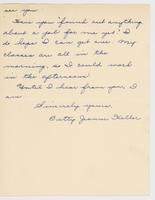 see you.
Have you found out anything
about a job for me yet? I
do hope I can get one. My
classes are all in the
morning, so I could work
in the afternoons.
Until I hear from you, I
am
Sincerely yours,
Betty Jeanne Keller